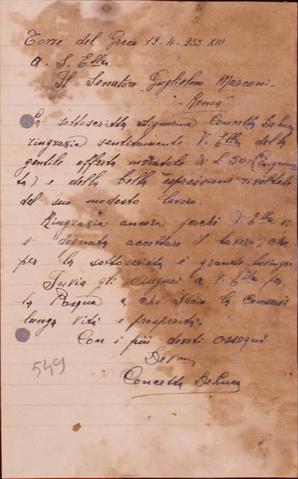 Torre del Greco 13-4-933 XIII
A. S. Ella
Il Senatore Guglielmo Marconi
- Roma
La sottoscritta Signorina Concetta De Luca
ringrazia sentitamente V. Ella della
gentile offerta inviatale di L 50= (cinquan
ta) e della bella espressione rivoltale
del suo modesto lavoro.
Ringrazia ancora perchè V. Ella si
è degnata accettare il lavoro, che
per la sottoscritta è grande
Invia gli auguri a V. Ella per
la Pasqua e che Iddio la conservi
lunga vita e prosperità.
Con i più devoti ossequi
Dev.ma
Concetta De Luca
549